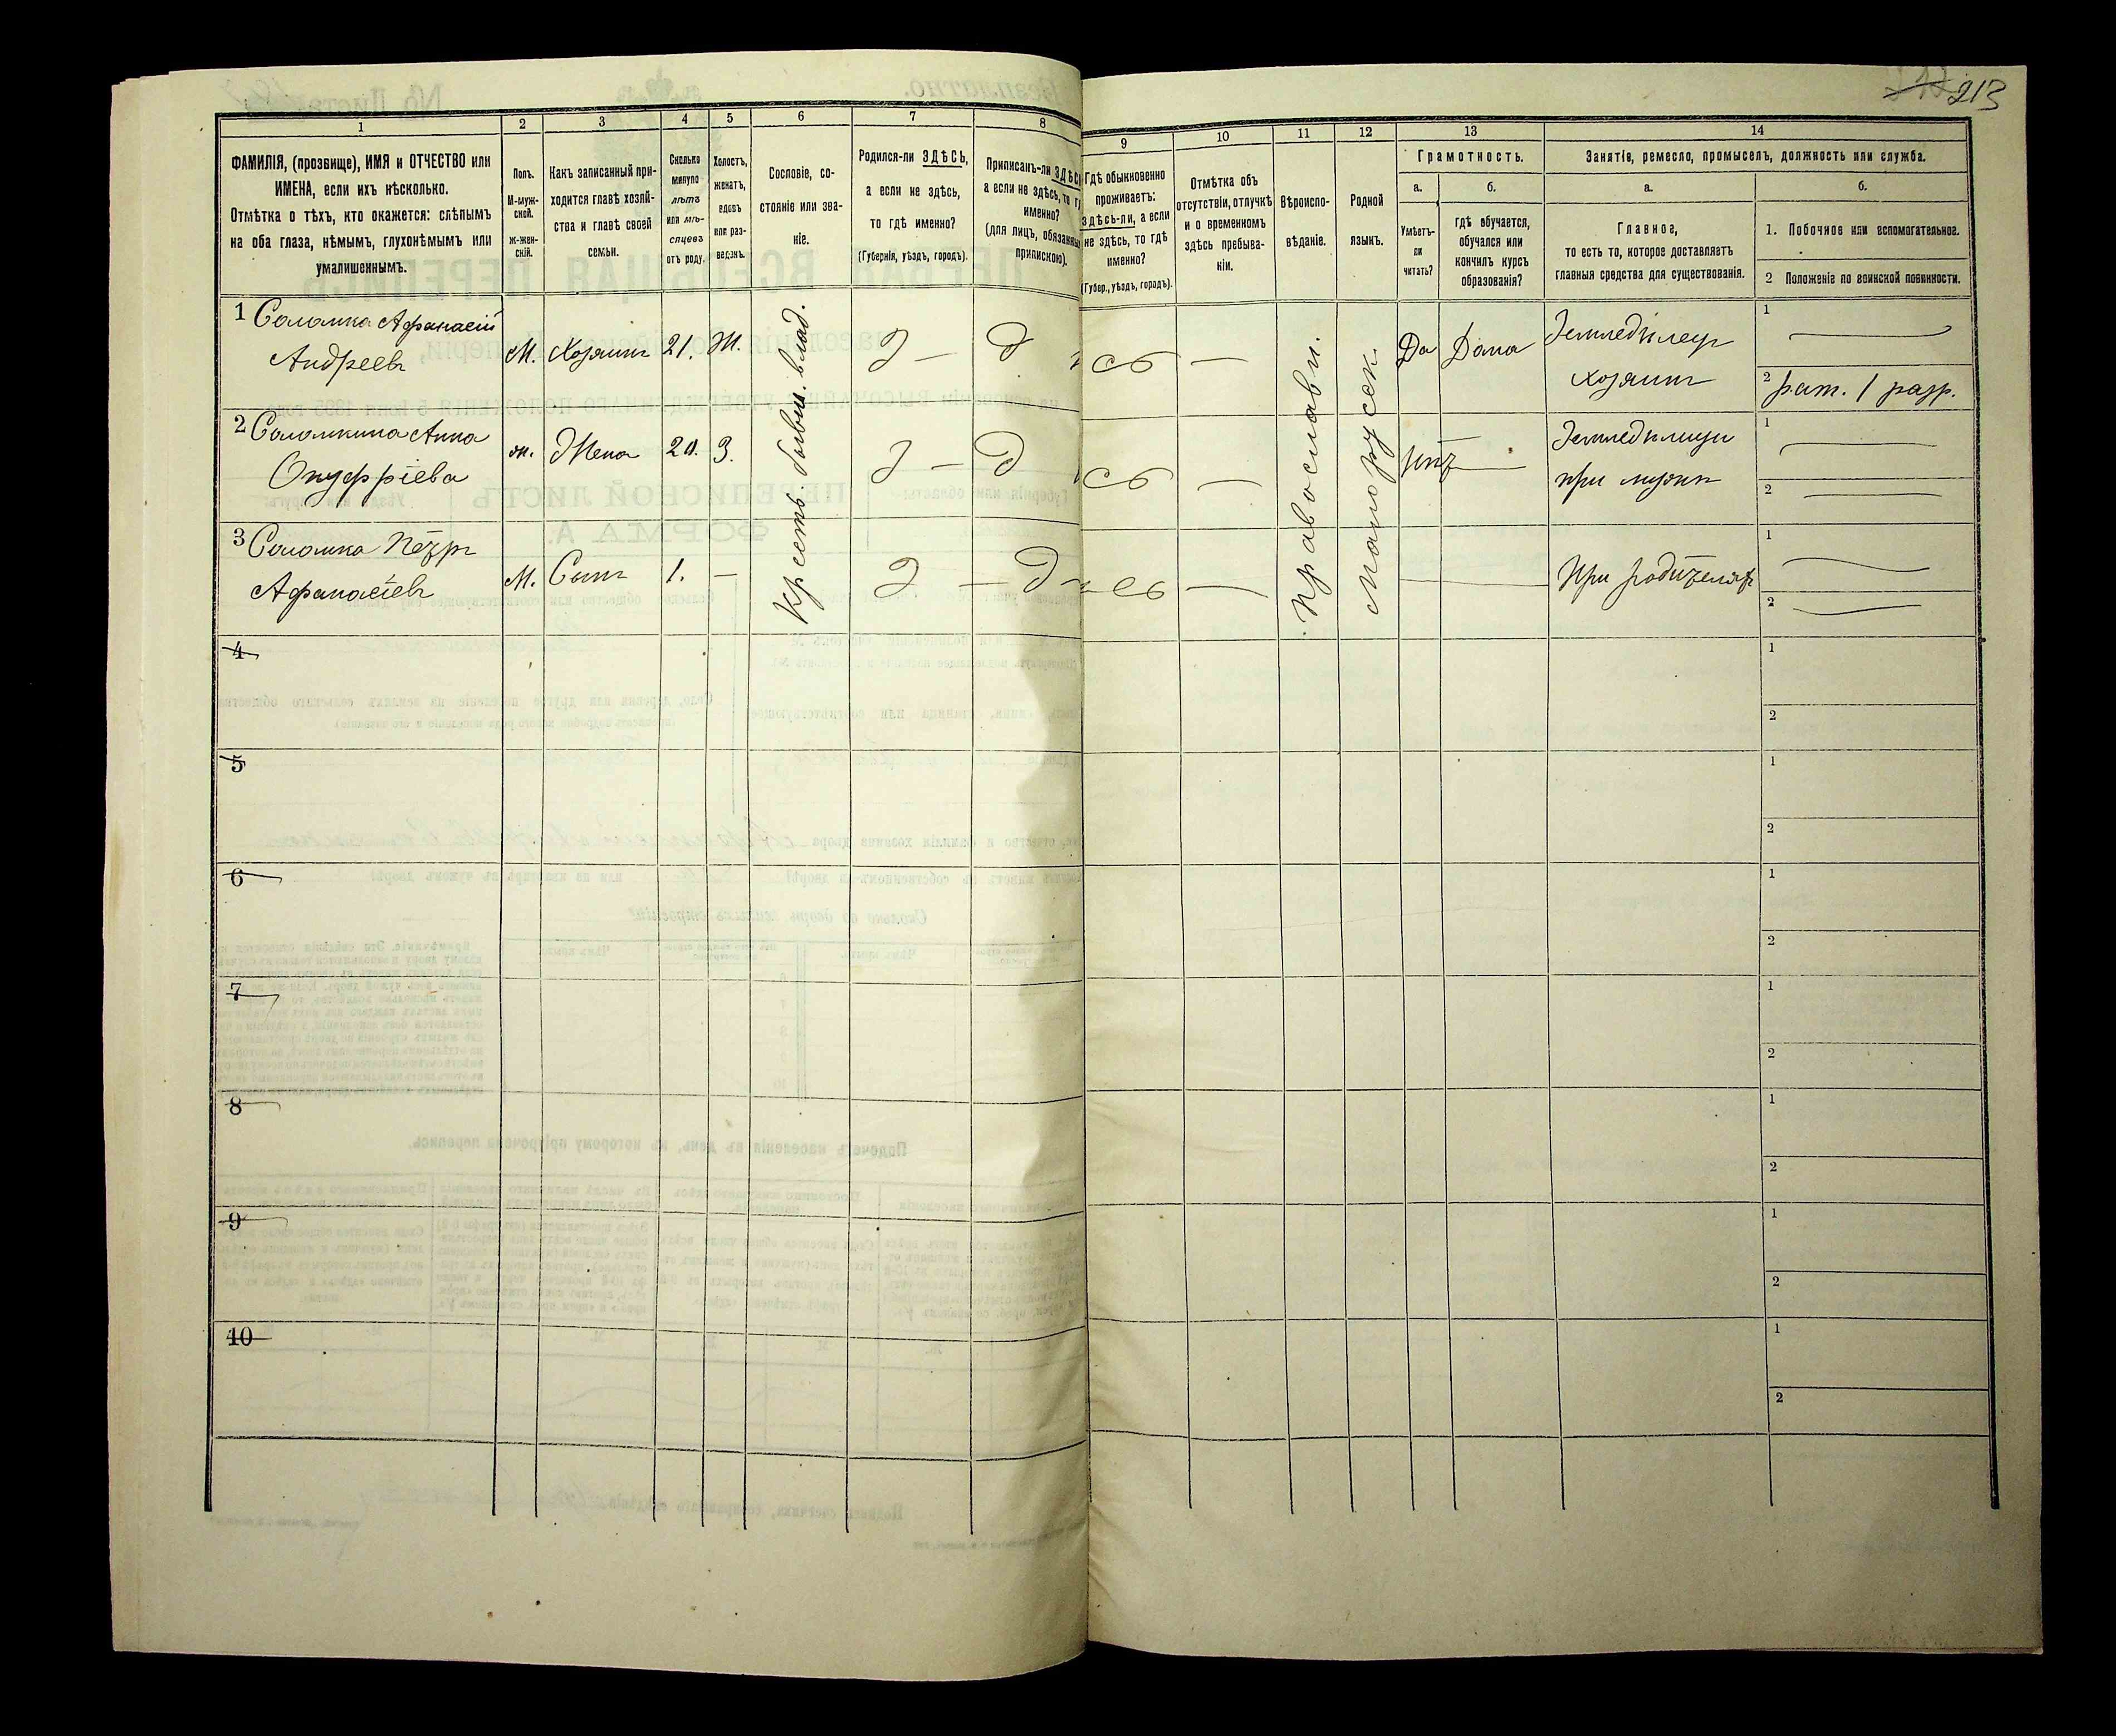 213
1
2
3
4
5
6
7
8
9
10
11
12
13
14
ФАМИЛІЯ, (прозвище), ИМЯ и ОТЧЕСТВО или
ИМЕНА, если ихъ нѣсколько.
Отмѣтка о тѣхъ, кто окажется: слѣпымъ
на оба глаза, нѣмымъ, глухонѣмымъ или
умалишеннымъ.
Полъ.
М-муж-
ской.
ж-жен-
скій.
Какъ записанный при-
ходится главѣ хозяй-
ства и главѣ своей
семьи.
Сколько
минуло
лѣтъ
или мѣ-
сяцевъ
отъ роду.
Холостъ,
женатъ,
вдовъ
или раз-
веденъ.
Сословіе, со-
стояніе или зва-
ніе.
Родился-ли ЗДѢСЬ,
а если не здѣсь,
то гдѣ именно?
(Губернія, уѣздъ, городъ).
Приписанъ-ли ЗДѢСЬ
а если не здѣсь, то
именно?
(для лицъ,
припискою).
Гдѣ обыкновенно
проживаетъ:
здѣсь-ли, а если
не здѣсь, то гдѣ
именно?
(Губер., уѣздъ, городъ).
Отмѣтка объ
отсутствіи, отлучкѣ
и о временномъ
здѣсь пребыва-
ніи.
Вѣроиспо-
вѣданіе.
Родной
языкъ.
Грамотность.
а.
б.
Умѣетъ-
ли
читать?
гдѣ обучается,
обучался или
кончилъ курсъ
образованія?
Занятіе, ремесло, промыселъ, должность или служба.
а.
б.
Главное,
то есть то, которое доставляетъ
главныя средства для существованія.
1. Побочное или вспомогательное.
2 Положеніе по воинской повинности.
1 Соломка Афанасій
Андреевъ
М.
Хозяинъ
21.
Ж.
Крестьян. бывш. влад.
Православн.
Малорусск.
Да
Дома
Земледѣлец
хозяинъ
1
2 рат. 1 разр.
2 Соломкина Анна
Онуфріева
ж.
Жена
20.
З.
Нѣт
Земледѣлица
при мужѣ
1
2
3 Соломка Петръ
Афанасіевъ
М.
Сынъ
1.
При родителях
1
2
4
1
2
5
1
2
6
1
2
7
1
2
8
1
2
9
1
2
10
1
2